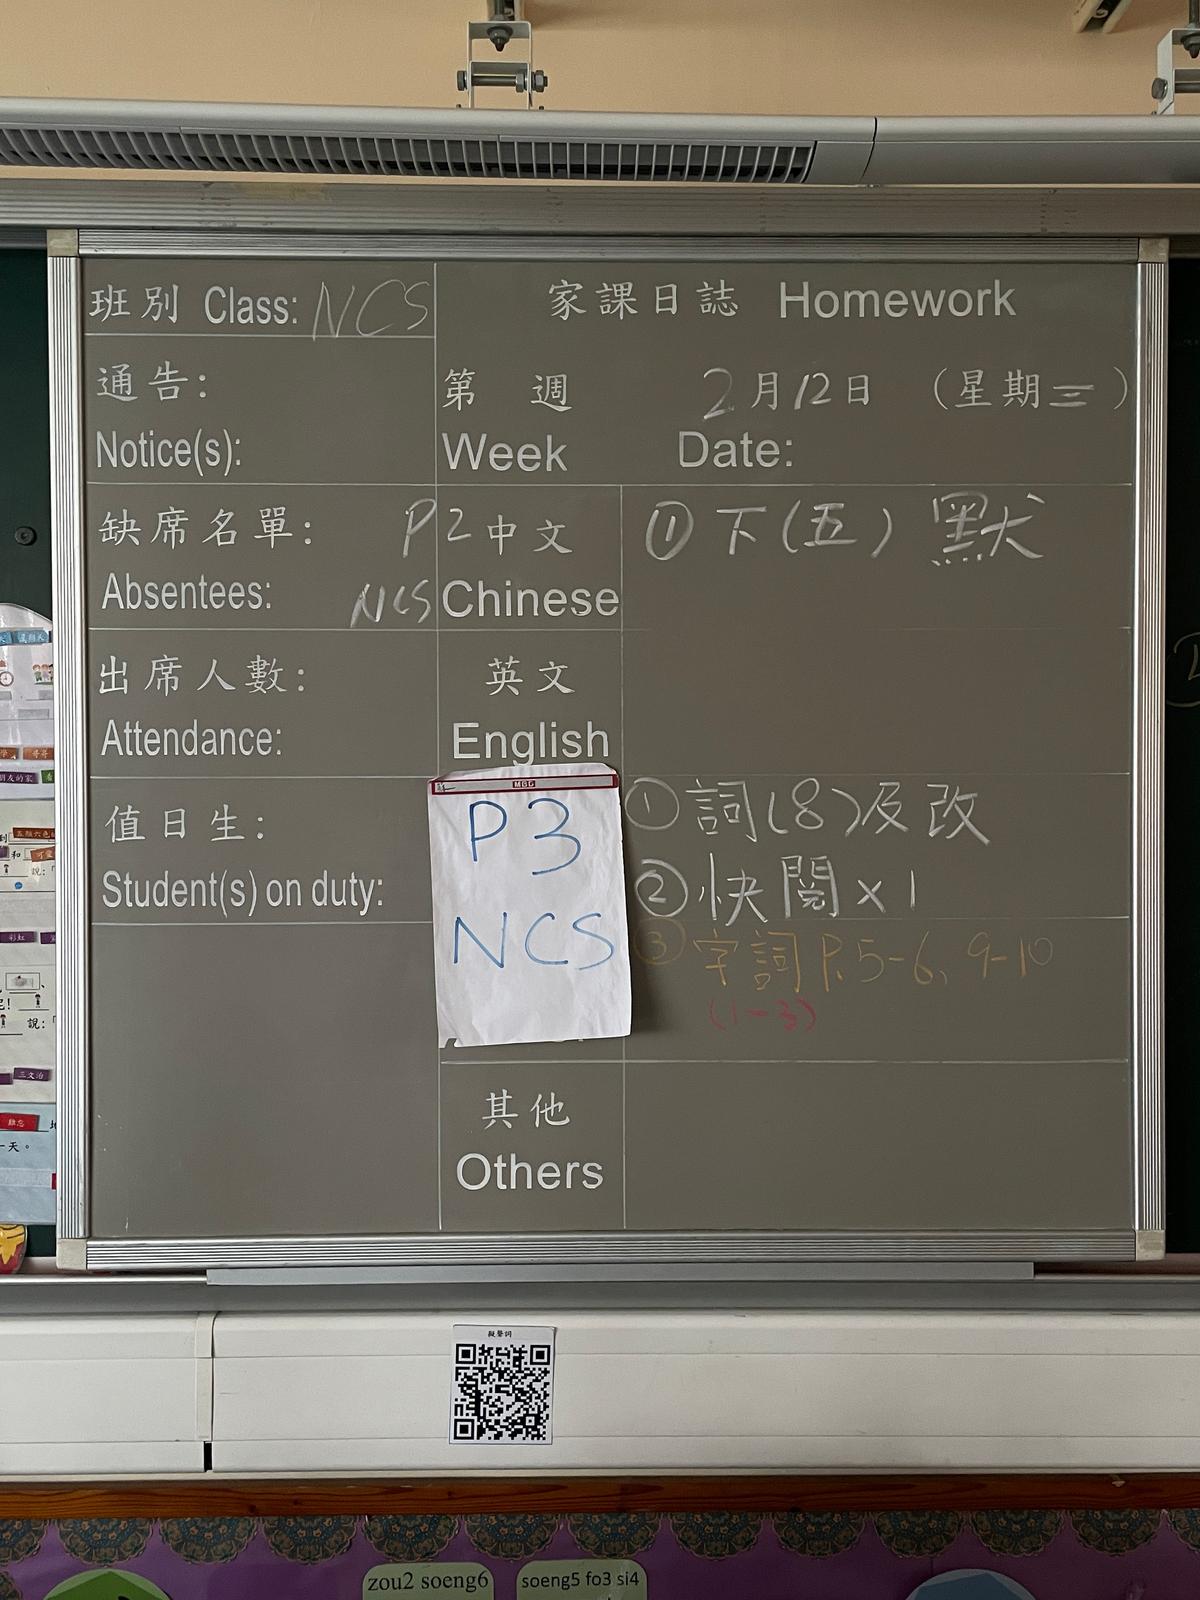 班別 Class: NCS
家課日誌 Homework
通告:
Notice(s):
第 週 2月12日 (星期三)
Week Date:
缺席名單:
Absentees:
P2 中文
NCS Chinese
① 下(五) 默
出席人數:
Attendance:
英文
English
值日生:
Student(s) on duty:
P3
NCS
① 詞(8)及改
② 快閱 x 1
③ 字詞 P.5-6, 9-10
(1-3)
其他
Others
擬聲詞
zou2 soeng6
soeng5 fo3 si4
五顏六色
和 可愛
說:「
彩虹
說:「
三文治
難忘
一天。